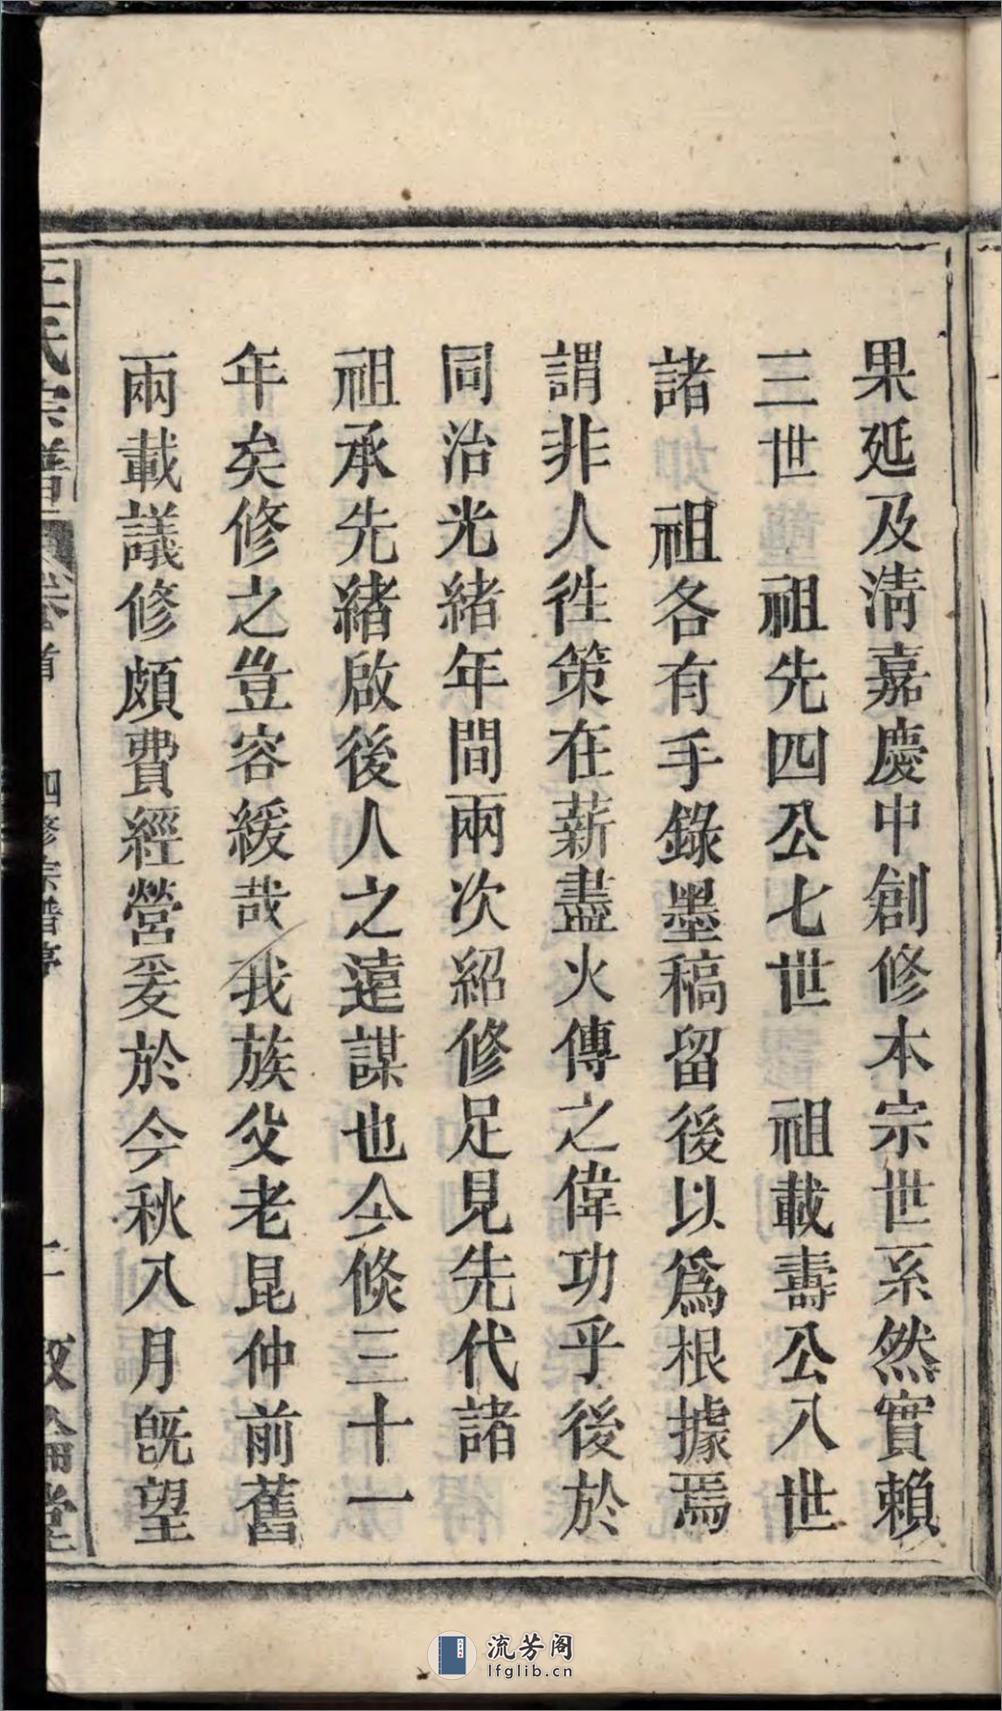 果延及淸嘉慶中創修本宗世系然實賴
三世　祖先四公七世　祖載壽公八世
諸　祖各有手錄墨稿留後以爲根據焉
謂非人徃策在薪盡火傳之偉功乎後於
同治光緒年間兩次紹修足見先代諸
祖承先緒啟後人之遠謀也今倐三十一
年矣修之豈容緩哉我族父老昆仲前舊
兩載議修頗費經營爰於今秋八月旣望
王氏宗譜　卷首　四修宗譜序　敦倫堂
流芳阁
lfglib.cn